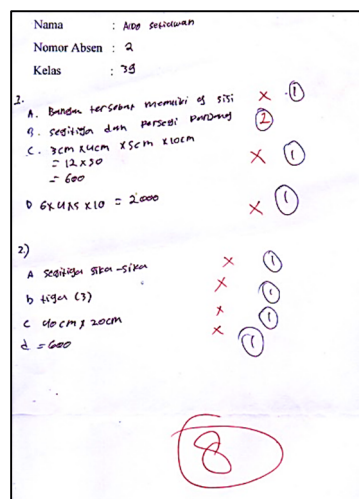 Nama : Aldo setiawan
Nomor Absen : 2
Kelas : 39
1.
A. Bangun tersebut memiliki 9 sisi × 1
B. segitiga dan Persegi Panjang 2
C. 3cm x 4cm x 5cm x 10cm × 1
= 12 x 50
= 600
D 6x4x5 x 10 = 2000 × 1
2.)
A segitiga sika-sika × 1
b tiga (3) × 1
c 40cm x 20cm × 1
d = 600 × 1
8